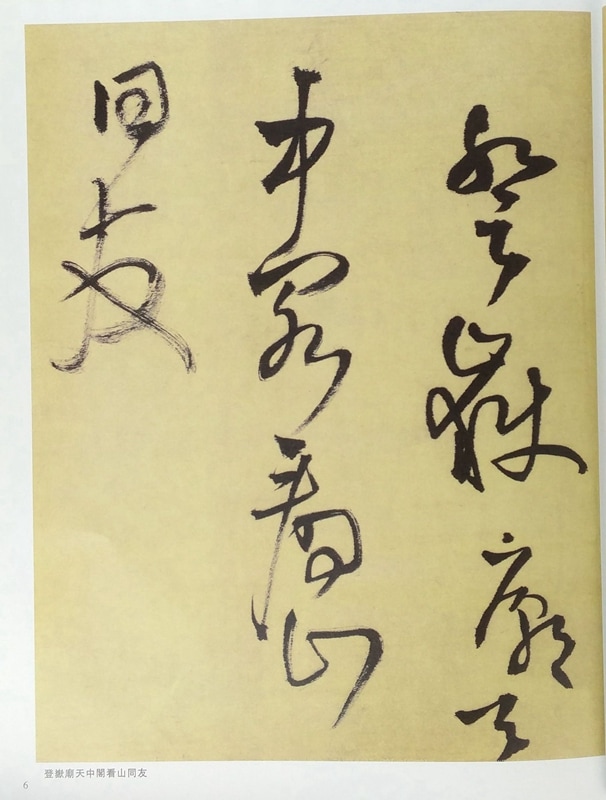 登嶽廟天
中閣看山
同友
登嶽廟天中閣看山同友
6